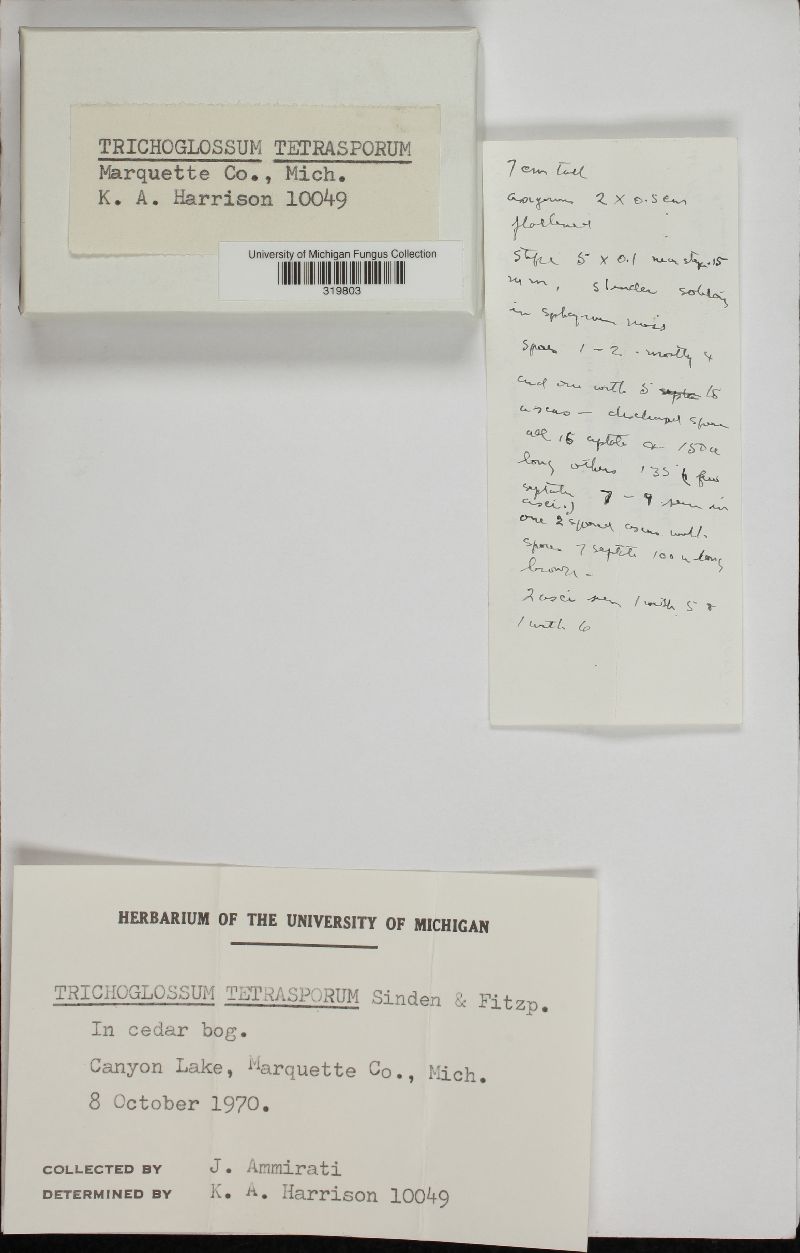 TRICHOGLOSSUM TETRASPORUM
Marquette Co., Mich.
K. A. Harrison 10049
University of Michigan Fungus Collection
319803
7 cm tall
2 x 0.5 cm
flattened
Stipe 5 x 0.1 near
slender solitary
in sphagnum moss
spores 1 - 2 - mostly 4
and one with 5
ascus - discharged spores
all 15 septate 150 u
long others 135 few
septate 7 - 9 seen in
asci.)
one 2 spored ascus with
spores 7 septate 100 u long
brown -
2 asci seen 1 with 5 &
1 with 6
HERBARIUM OF THE UNIVERSITY OF MICHIGAN
TRICHOGLOSSUM TETRASPORUM Sinden & Fitzp.
In cedar bog.
Canyon Lake, Marquette Co., Mich.
8 October 1970.
COLLECTED BY J. Ammirati
DETERMINED BY K. A. Harrison 10049